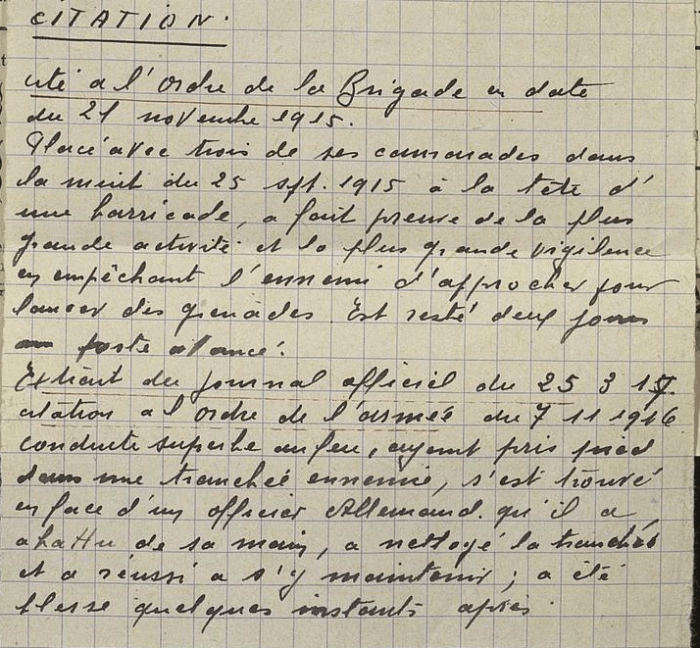 CITATION.
cité a l'ordre de la Brigade en date
du 21 novembre 1915.
Placé avec trois de ses camarades dans
la nuit du 25 sept. 1915 à la tête d'
une barricade, a fait preuve de la plus
grande activité et la plus grande vigilence
en empêchant l'ennemi d'approcher pour
lancer des grenades. Est resté deux jours
au poste avancé.
Extrait du journal officiel du 25 3 17.
citation a l'ordre de l'armée du 7 11 1916.
conduite superbe au feu, ayant pris pied
dans une tranchée ennemie, s'est trouvé
en face d'un officier Allemand. qu'il a
abattu de sa main, a nettoyé la tranchée
et a réussi a s'y maintenir ; a été
blessé quelques instants après.